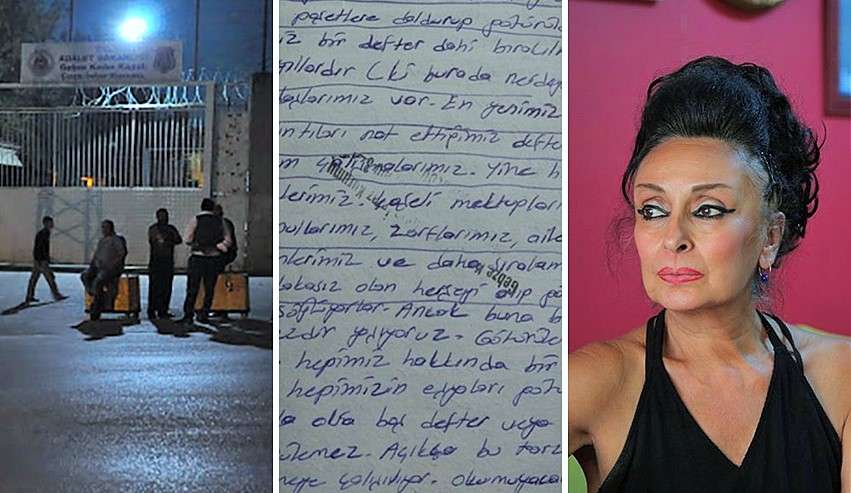 ADALET BAKANLIĞI
Gebze Kadın Kapalı
Ceza İnfaz Kurumu
paketlere doldurup götürül
iz bir defter dahi bırakıl
yıllardır (ki burada nerdey
aşlarımız var. En yenimiz
ntıları not ettiğimiz defte
m çalışmalarımız. Yine h
lerimiz.
mektupları
pullarımız, zarflarımız, aile
mlerimiz ve daha sıralam
akasız olan herşeyi alıp gö
söylüyorlar. Ancak buna b
zdır yaşıyoruz. Götürül
hepimiz hakkında bir
hepimizin eşyaları götü
da olsa boş defter veya
ülemez. Açıkça bu tarz
meye çalışılıyor. okumuyaca
Gebze K